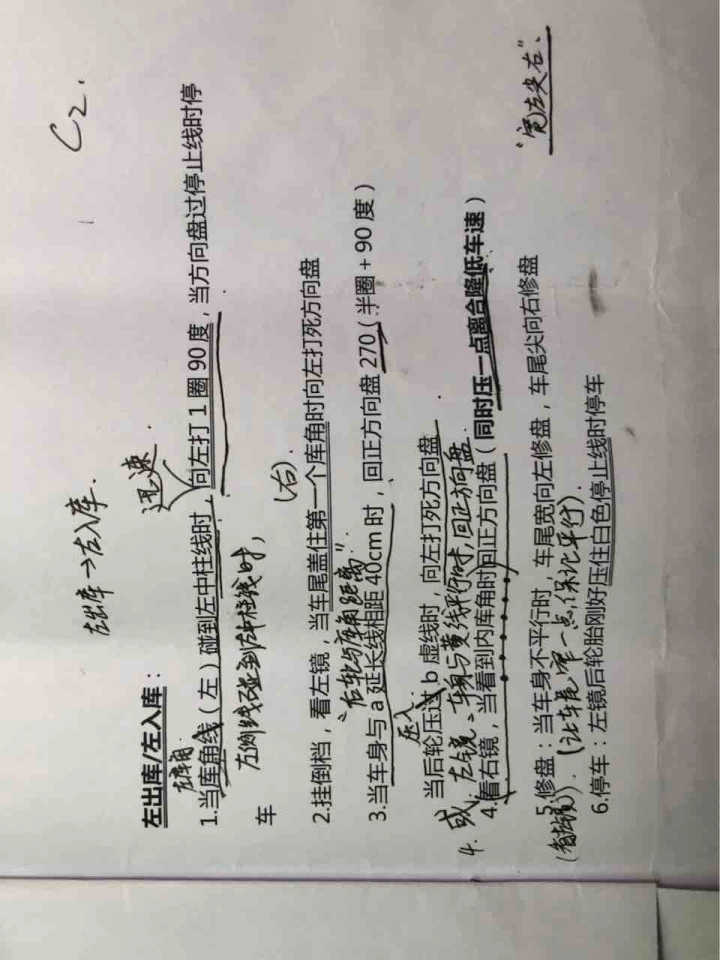 C2.
左出库→左入库.
左出库/左入库：
迅速.
左库角
1.当库角线（左）碰到左中柱线时，向左打1圈90度，当方向盘过停止线时停
车
左侧线碰到左中柱线时，
（右）.
2.挂倒档，看左镜，当车尾盖住第一个库角时向左打死方向盘
"后轮与库角距离".
3.当车身与a延长线相距40cm时，回正方向盘270（半圈+90度）
压入
当后轮压过b虚线时，向左打死方向盘
4.或左镜、车身与黄线平行时,回正方向盘.
4.看右镜，当看到内库角时回正方向盘（同时压一点离合降低车速）
"宽左尖右"、
5.修盘：当车身不平行时，车尾宽向左修盘，车尾尖向右修盘
（让车尾窄一点,保证平行）.
6.停车：左镜后轮胎刚好压住白色停止线时停车